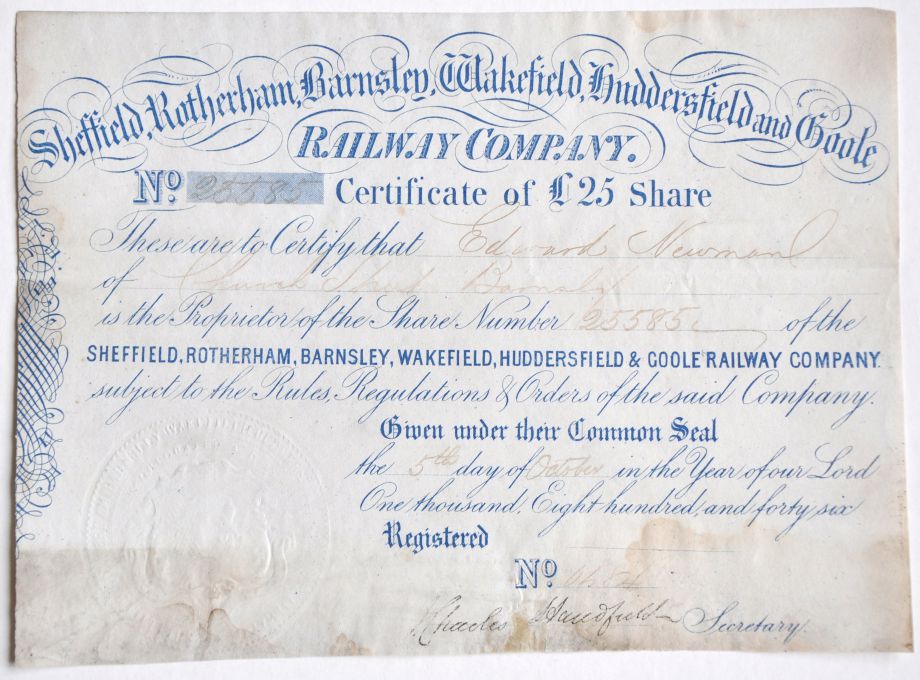 Sheffield, Rotherham, Barnsley, Wakefield, Huddersfield and Goole
RAILWAY COMPANY.
No. 25585 Certificate of £25 Share
These are to Certify that Edward Newman
of Church Street Barnsley
is the Proprietor of the Share Number 25585 of the
SHEFFIELD, ROTHERHAM, BARNSLEY, WAKEFIELD, HUDDERSFIELD & GOOLE RAILWAY COMPANY.
subject to the Rules, Regulations & Orders of the said Company.
Given under their Common Seal
the 5th day of October in the Year of our Lord
One thousand, Eight hundred, and forty six
Registered
No.
Charles Handfield Secretary.